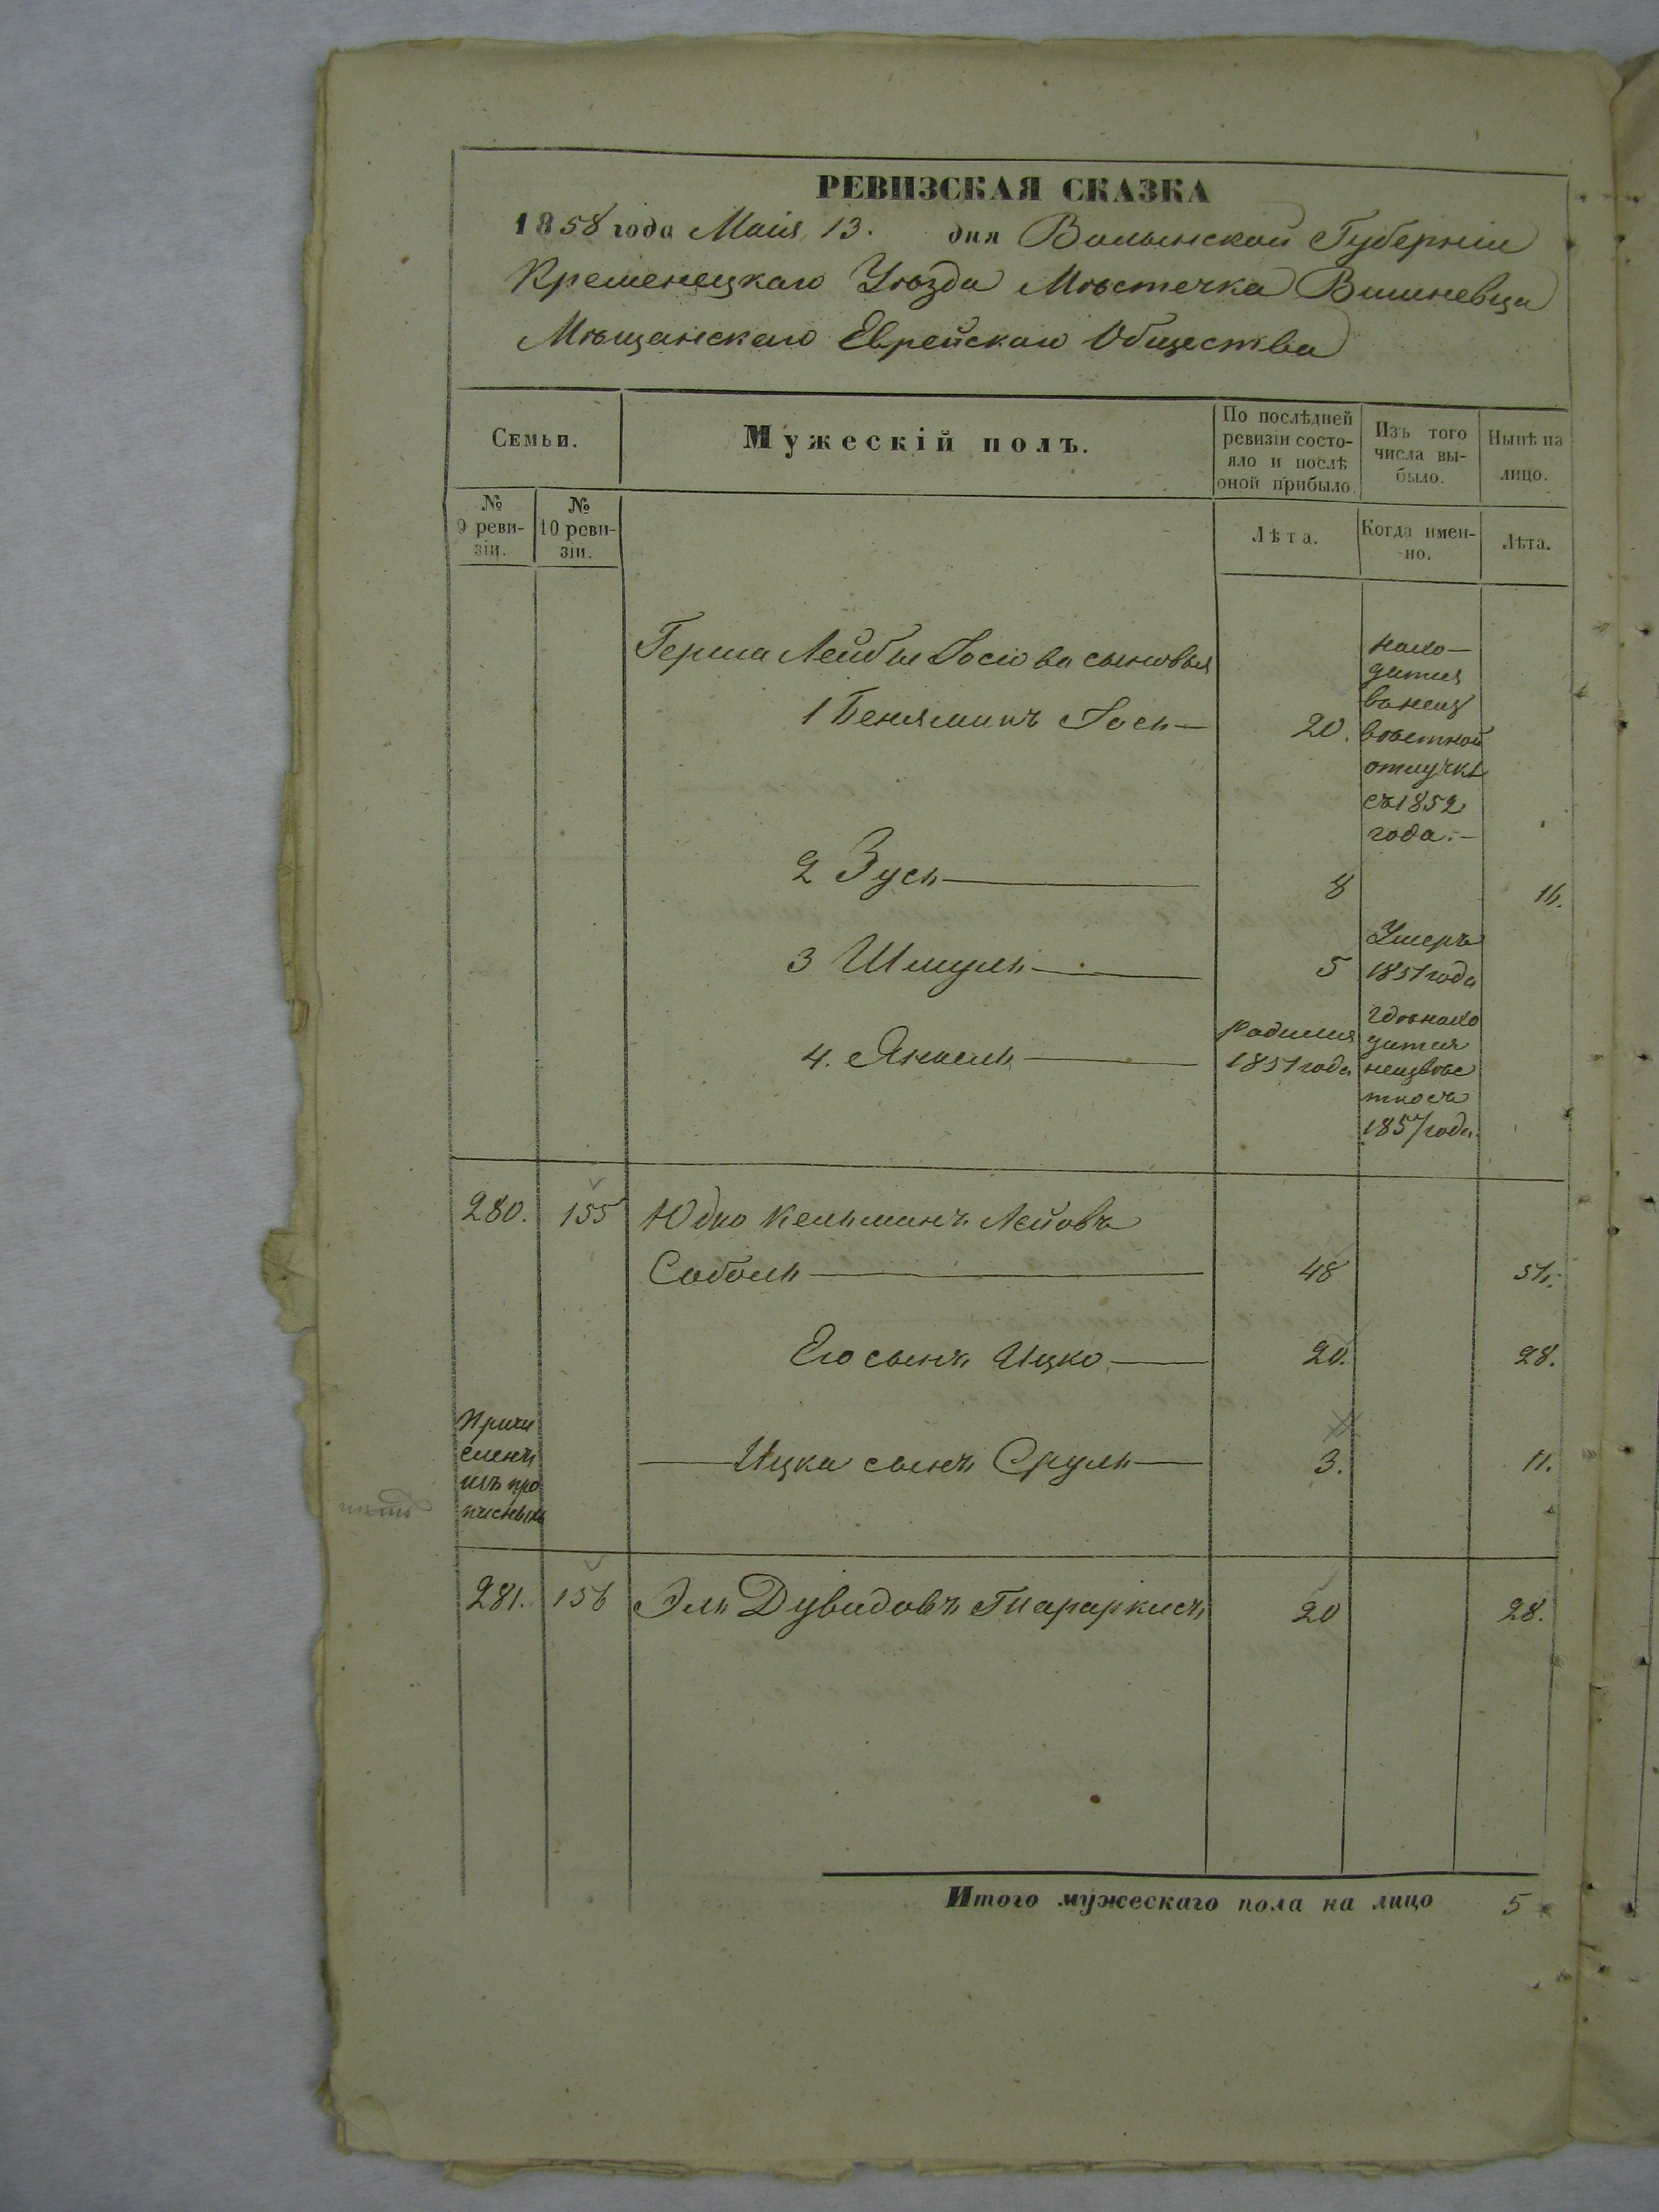 РЕВИЗСКАЯ СКАЗКА
1858 года Маія 13. дня Волынской Губерніи
Кременецкаго Уѣзда Мѣстечка Вишневца
Мѣщанскаго Еврейскаго Общества
Семьи.
Мужескій полъ.
По послѣдней
ревизіи состо-
яло и послѣ
оной прибыло.
Изъ того
числа вы-
было.
Нынѣ на
лицо.
№
9 реви-
зіи.
№
10 реви-
зіи.
Лѣта.
Когда имен-
но.
Лѣта.
Герша Лейбы Іосіова сыновья
1 Беняминъ Іось — 20.
нахо-
дится
в неиз
вѣстной
отлучкѣ
съ 1852
года. —
2 Зусь — 8 16.
3 Шмуль — 5
Умеръ
1851 года
4. Янкель —
родился
1851 года
гдѣ нахо
дится
неизвѣс
тно съ
1857 года.
280. 155 Юдко Кельманъ Лейовъ
Соболь — 48 56.
Его сынъ Ицко — 20. 28.
Причи
сленъ
изъ про
писныхъ
— Ицка сынъ Сруль — 3. 11.
281. 156 Эль Дувидовъ 20 28.
Итого мужескаго пола на лицо 5